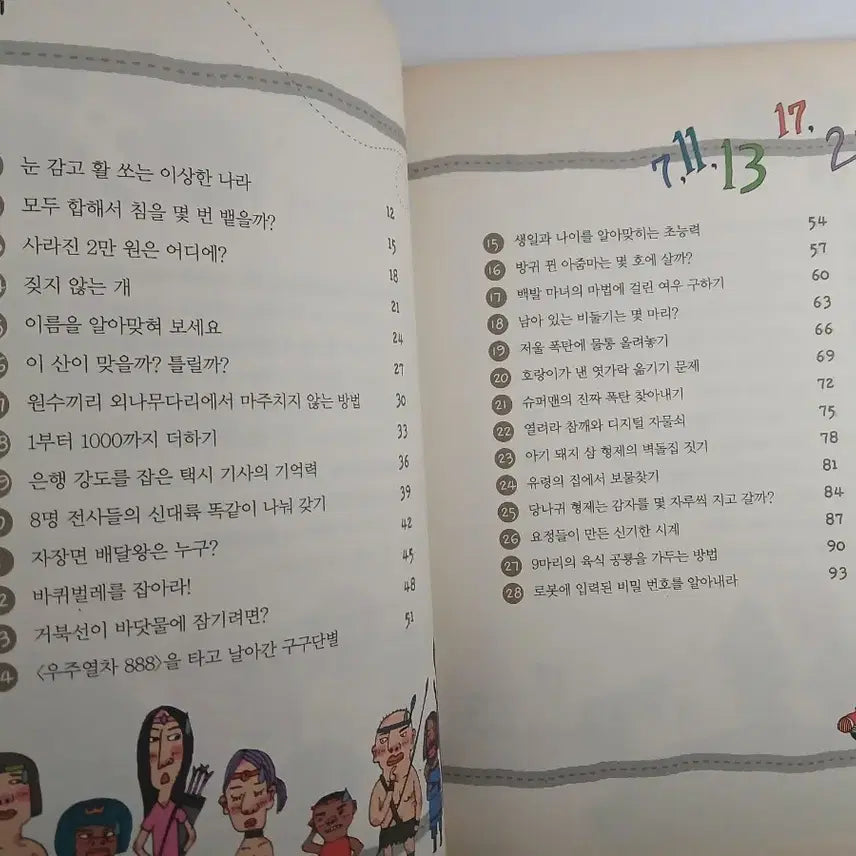 눈 감고 활 쏘는 이상한 나라 12
모두 합해서 침을 몇 번 뱉을까? 15
사라진 2만 원은 어디에? 18
짖지 않는 개 21
이름을 알아맞혀 보세요 24
이 산이 맞을까? 틀릴까? 27
원수끼리 외나무다리에서 마주치지 않는 방법 30
1부터 1000까지 더하기 33
은행 강도를 잡은 택시 기사의 기억력 36
8명 전사들의 신대륙 똑같이 나눠 갖기 39
자장면 배달왕은 누구? 42
바퀴벌레를 잡아라! 45
거북선이 바닷물에 잠기려면? 48
〈우주열차 888〉을 타고 날아간 구구단별 51
7, 11, 13 17, 2
15 생일과 나이를 알아맞히는 초능력 54
16 방귀 뀐 아줌마는 몇 호에 살까? 57
17 백발 마녀의 마법에 걸린 여우 구하기 60
18 남아 있는 비둘기는 몇 마리? 63
19 저울 폭탄에 물통 올려놓기 66
20 호랑이가 낸 엿가락 옮기기 문제 69
21 슈퍼맨의 진짜 폭탄 찾아내기 72
22 열려라 참깨와 디지털 자물쇠 75
23 아기 돼지 삼 형제의 벽돌집 짓기 78
24 유령의 집에서 보물찾기 81
25 당나귀 형제는 감자를 몇 자루씩 지고 갈까? 84
26 요정들이 만든 신기한 시계 87
27 9마리의 육식 공룡을 가두는 방법 90
28 로봇에 입력된 비밀 번호를 알아내라 93